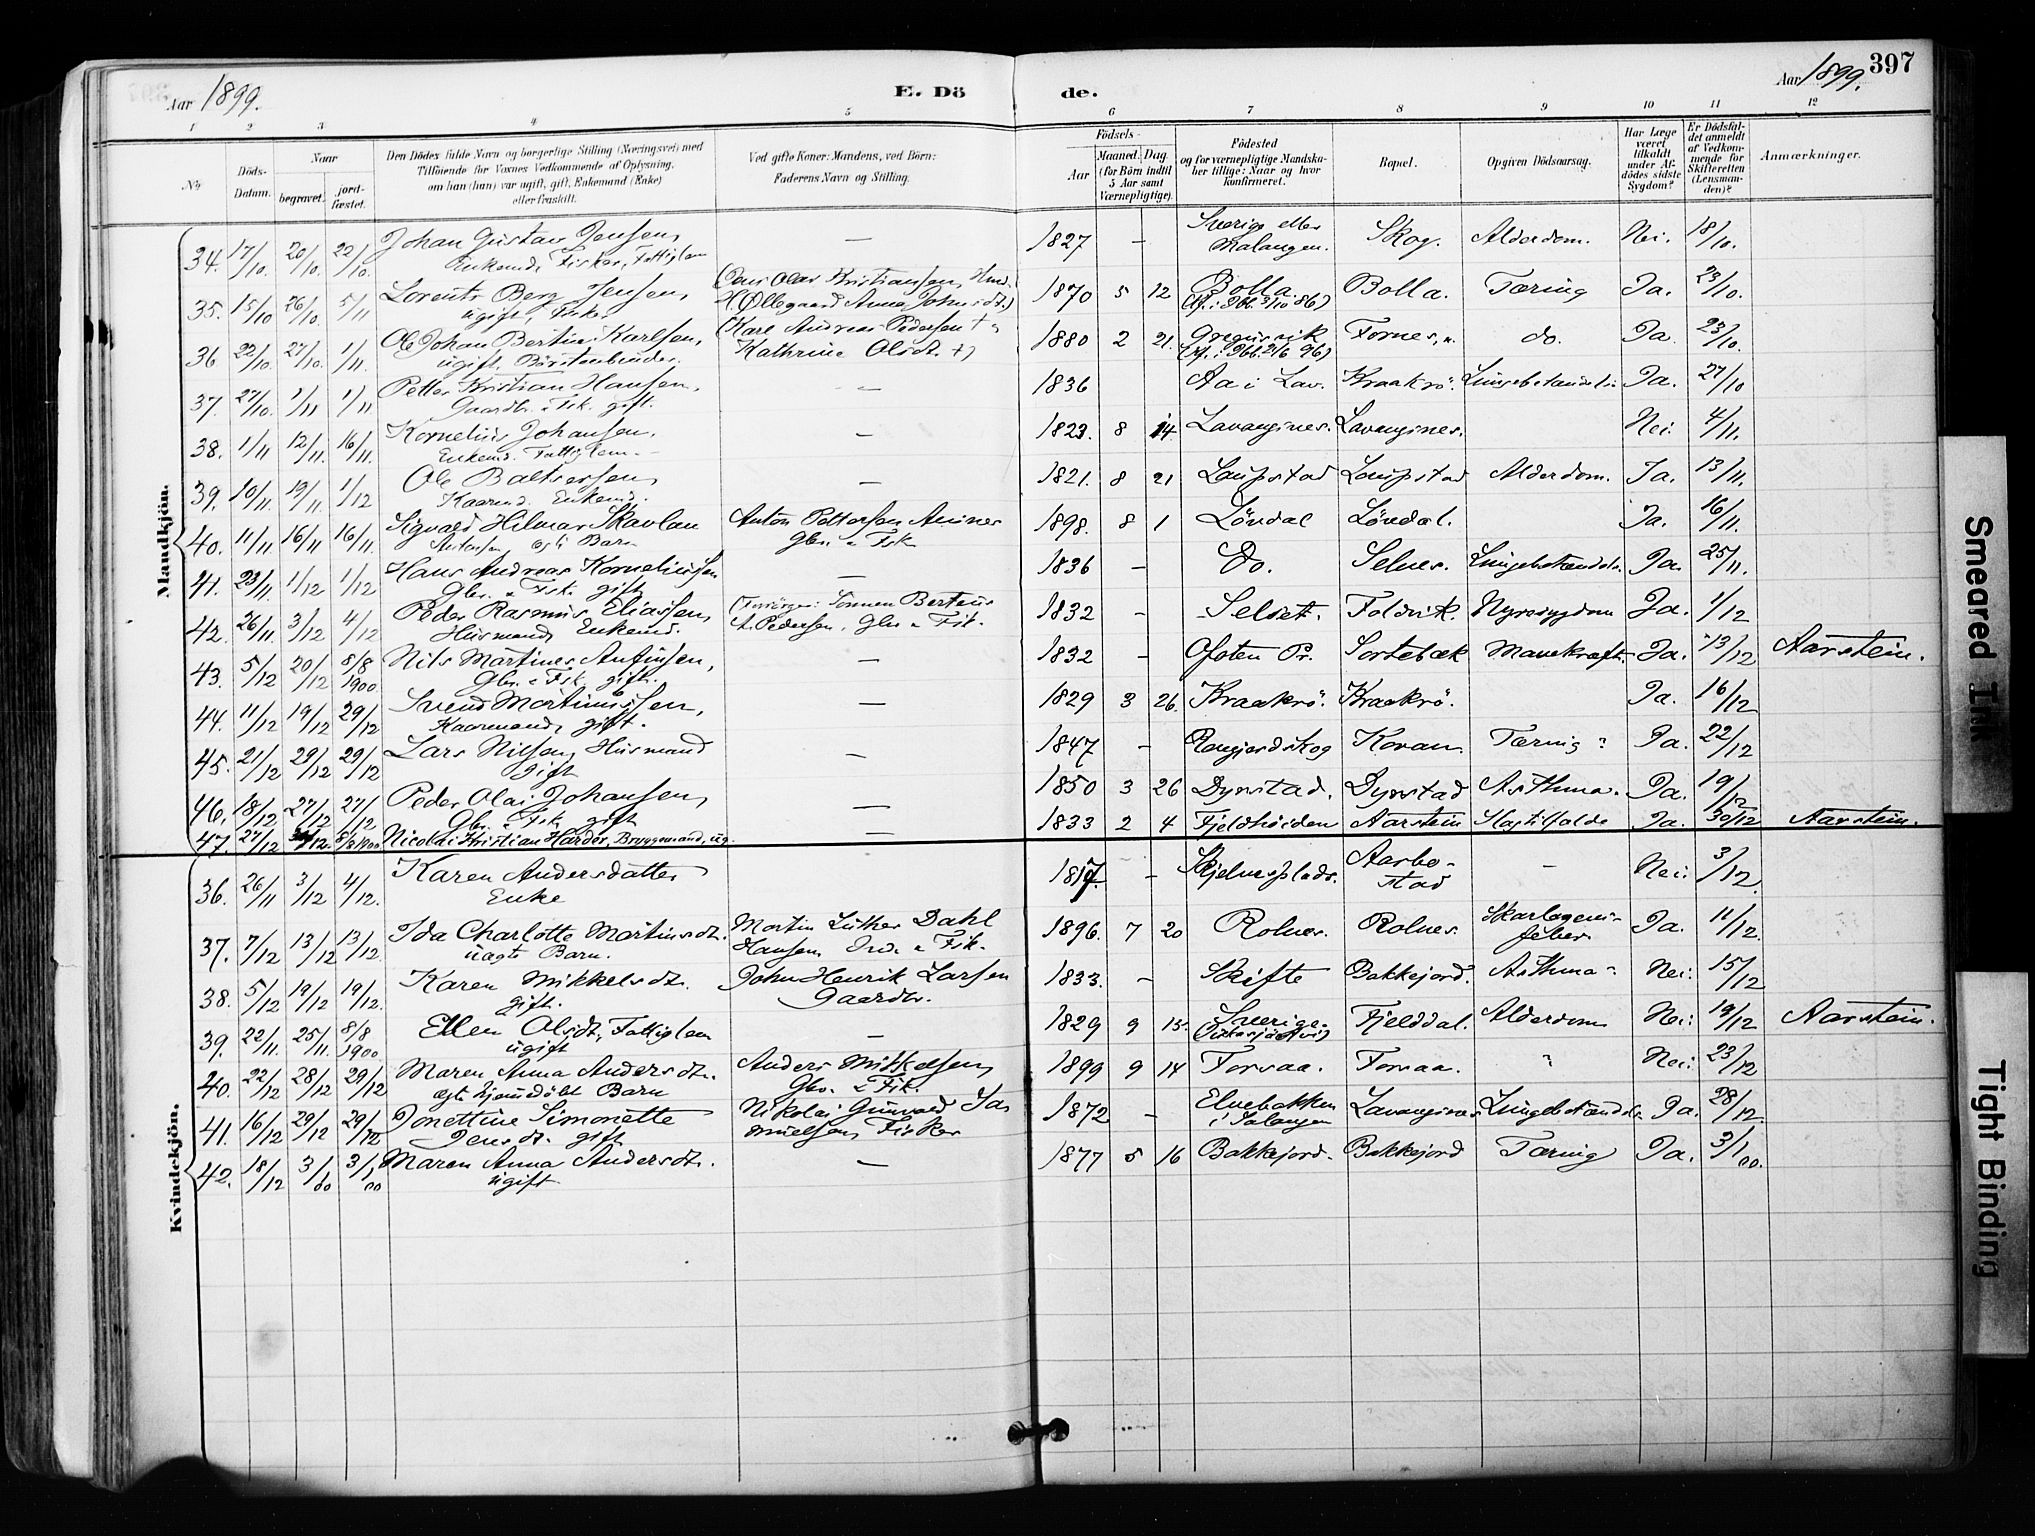 397
Aar 1899.
E. Dö de.
Aar 1899.
1 2 3 4 5 6 7 8 9 10 11 12
No
Döds-Datum.
Naar
begravet.
jordfæstet.
Den Dödes fulde Navn og borgerlige Stilling (Næringsvei) med Tilföiende for Voxnes Vedkommende af Oplysning, om han (hun) var ugift, gift, Enkemand (Enke) eller fraskilt.
Ved gifte Koner: Mandens, ved Börn: Faderens Navn og Stilling.
Födsels-
Aar
Maaned. Dag
(for Börn indtil 5 Aar samt Værnepligtige).
Födested og for værnepligtige Mandskaber tillige: Naar og hvor konfirmeret.
Bopæl.
Opgiven Dödsaarsag.
Har Læge været tilkaldt under Afdödes sidste Sygdom?
Er Dödsfaldet anmeldt af Vedkommende for Skifteretten (Lensmanden)?
Anmærkninger.
Mandkjön.
34. 17/10. 20/10. 22/10. Johan Gustav Jensen, Enkemd. Fisker, Fattiglem — 1827 — Sverige eller Malangen. Skog. Alderdom. Nei. 18/10.
35. 15/10 26/10. 5/11 Lorents Berg Jensen, ugift, Fisker (Jens Olai Kristiansen, Husmd. Øllegaard Anna Johnsdt.) 1870 5 12 Bolla Bolla. Tæring Ja. 23/10.
36 22/10. 27/10. 1/11. Ole Johan Bertin Karlsen, ugift, Börstenbinder. (Karl Andreas Pedersen + Kathrine Olsdt. +) 1880 2 21. Gregusvik Fornes, do. Ja. 23/10.
37. 27/10. 1/11 1/11 Petter Kristian Hansen, Gaardbr. & Fisk. gift. — 1836 Aa i Lav. Kraakrö. Lungebetændelse Ja. 27/10
38. 1/11 12/11. 16/11. Kornelius Johansen. Enkemd. Fattiglem. — 1823. 8 14. Lavangsnes. Lavangsnes. Nei. 4/11.
39. 10/11. 19/11. 1/12 Ole Baltsersen, Kaarmd. Enkemd. — 1821. 8 21 Laupstad Laupstad Alderdom. Ja. 13/11.
40. 11/11 16/11 16/11. Sigvald Hilmar Skavlan Antonsen, ægte Barn Anton Pettersen Gbr. & Fisk 1898. 8 1 Lövdal Lövdal. Ja. 16/11.
41. 23/11. 1/12 1/12 Hans Andreas Korneliussen Gbr. & Fisk. gift — 1836 — Do. Selnes. Lungebetændelse. Ja. 25/11.
42. 26/11. 3/12 4/12 Peder Rasmus Eliassen, Husmand, Enkemd. (Forsörger: Sönnen Berteus A. Pedersen, Gbr. & Fisk. 1832 — Selset. Foldvik. Nyresygdom Ja. 1/12
43. 5/12 20/12 8/8 1900. Nils Martines Anfinsen, Gbr. & Fisk. gift. — 1832 — Ofoten Pr. Sortebæk Mavekræft. Ja. 13/12 Aarstein.
44. 11/12 19/12 29/12 Svend Martinussen, Kaarmand, gift. — 1829 3 26. Kraakrö. Kraakrö. Ja. 16/12
45. 21/12 29/12 29/12 Lars Nilsen, Husmand gift — 1847 — Kovan. Tæring Ja. 22/12
46. 18/12 27/12 27/12 Peder Olai Johansen, Gbr. & Fisk gift — 1850 3 26 Dyrstad. Dyrstad Asthma. Ja. 19/12
47. 27/12 8/8 1900 Nicolai Kristian Harder, Bryggemand, ug. — 1833 2 4 Fjeldhöiden Aarstein Slagtilfælde Ja. 30/12 Aarstein.
Kvindekjön.
36. 26/11 3/12 4/12. Karen Andersdatter Enke 1817. — Skjelnesplads. Aarbostad — Nei. 3/12.
37. 7/12 13/12 13/12. Ida Charlotte Martinsdt. uægte Barn. Martin Luther Dahl Hansen, & Fisk. 1896. 7 20 Rolnes. Rolnes. Skarlagensfeber. Ja. 11/12.
38. 5/12 19/12 19/12. Karen Mikkelsdt. gift. John Henrik Larsen Gaardbr. 1833. — Skifte Bakkejord. Asthma Nei. 15/12
39. 22/11. 25/11. 8/8 1900. Ellen Olsdt, Fattiglem ugift — 1829 9 15. Sverige Fjelddal. Alderdom Nei. 19/12 Aarstein.
40. 22/12 28/12 29/12 Maren Anna Andersdt. ægte hjemdöbt Barn Anders Mikkelsen, Gbr. & Fisk. 1899 9 14 Forsaa. Forsaa. " Nei. 23/12
41. 16/12 29/12 29/12 Jonettine Simonette Jensdt. gift Nikolai Gunvald Samuelsen, Fisker 1872 — Elvebakken i Salangen Lavangsnes Lungebetændelse. Ja. 28/12.
42. 18/12 3/1 00 3/1 00 Maren Anna Andersdt. ugift — 1877 5 16 Bakkejord. Bakkejord Tæring Ja. 3/1 00.
Smeared Ink
Tight Binding